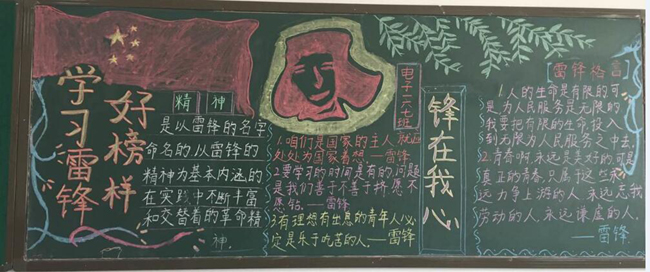 学习雷锋
好榜样
精神
是以雷锋的名字
命名的以雷锋的
精神为基本内涵的
在实践中不断丰富
和交替着的革命精
神
1.咱们是国家的主人
处处为国家着想—雷锋
2要学习的时间是有的问题
是我们善不善于挤愿不
愿钻.—雷锋
3有理想有出息的青年人心
定是乐于吃苦的人—雷锋
电子一六七班
锋在我心
雷锋格言
1人的生命是有限的可
是为人民服务是无限的
我要把有限的生命投入
到为人民服务之中去.
2.青春啊永远是美好的可是
真正的青春只属于这些永
远力争上游的人永远忘我
劳动的人永远谦虚的人.
—雷锋